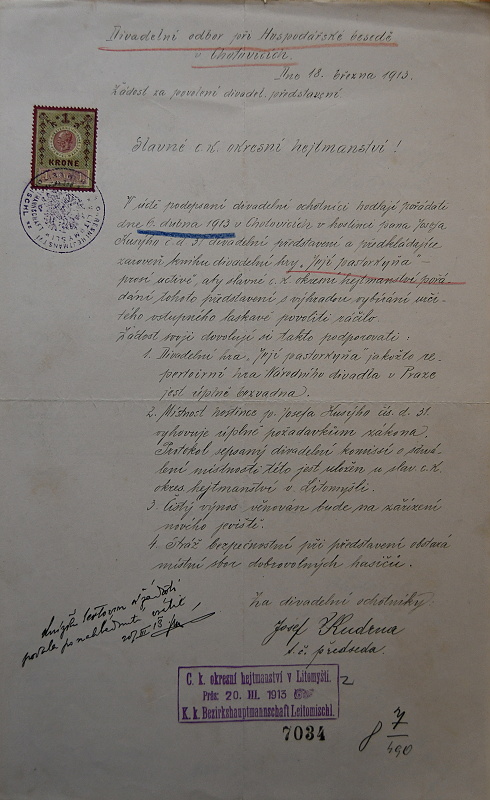 Divadelní odbor při Hospodářské besedě
v Cholticích.
Dne 18. března 1913.
Žádost za povolení divadel. představení
Slavné c. k. okresní hejtmanství!
1
KRONE
V úctě podepsaní divadelní ochotníci hodlají pořádati
dne 6. dubna 1913 v hostinci pana Josefa
Husýho č. d. 31. divadelní představení a předkládajíce
zároveň knihu divadelní hry „Její pastorkyňa" –
prosí uctivě, aby slavné c. k. okresní hejtmanství pořá-
dání tohoto představení s výhradou vybírání urči-
tého vstupného laskavě povoliti ráčilo.
Žádost svoji dovolují si takto podporovati:
1. Divadelní hra „Její pastorkyňa" jakožto re-
pertoirní hra Národního divadla v Praze
jest úplně bezvadna.
2. Místnost hostince p. Josefa Husýho čís. d. 31.
vyhovuje úplně požadavkům zákona.
Protokol sepsaný divadelní komissí o schvá-
lení místnosti této jest uložen u slav. c. k.
okres. hejtmanství v Litomyšli.
3. Čistý výnos věnován bude na zařízení
nového jeviště.
4. Stráž bezpečnostní při představení obstará
místní sbor dobrovolných hasičů.
Za divadelní ochotníky:
Josef Kudrna
t. č. předseda.
C. k. okresní hejtmanství v Litomyšli.
Präs: 20. III. 1913
K. k. Bezirkshauptmannschaft Leitomischl.
7034
8 7/490